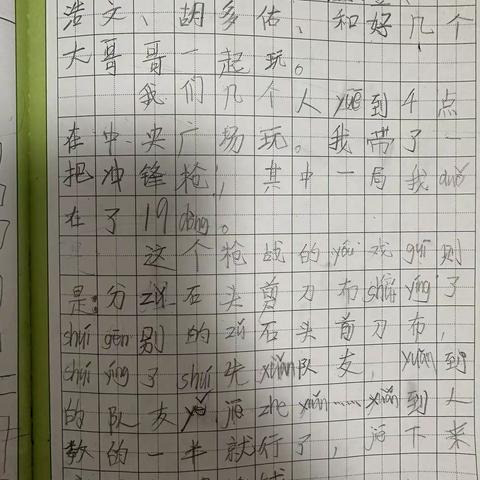 浩文、胡多佑、和好几个
大哥哥一起玩。
我们几个人yuē到4点
在中央广场玩。我带了一
把冲锋枪，其中一局我duǒ
在了19dòng。
这个枪战的yóu戏guī则
是：分zǔ石头剪刀布shū yíng了
shuí gēn别的zǔ石头剪刀布，
shuí yíng了shuí先xuǎn队友，xuǎn到
的队友yě jiē zhe xuǎn……xuǎn到人
数的一半就行了，jiē下来